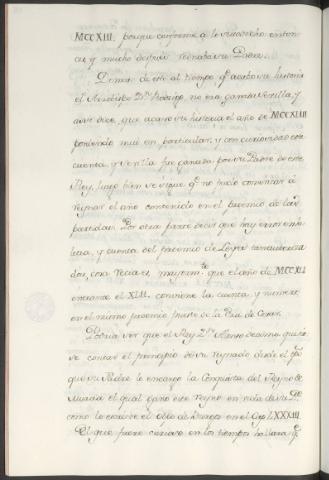 MCCXIII. porque conforme a lo sucedido enton-
ces y mucho despues reinaba su Padre.
Demas de esto al tiempo q.e acabó su historia
el Arzobispo D.n Rodrigo, no era ganada Sevilla, y
dice, que acavó su historia el año de MCCXLIII
poniendo mui en particular, y con curiosidad esta
cuenta, y Sevilla fue ganada por su Padre de este
Rey, luego bien se sigue q.e no pudo comenzar á
reynar el año contenido en el proemio de las
partidas. Por otra parte decir que hay error en la
letra, y cuenta del proemio de Leyes tan autoriza-
das, cosa recia es, mayorm.te que el año de MCCXLI
encarna el XLIII. conviene la cuenta, y numero
en el mismo proemio puesto de la Era de Cesar.
Podria ser que el Rey D.n Alonso decimo, quisie-
se contar el principio de su reynado desde el q.e
que su Padre le encargo la Conquista del Reyno de
Murcia el qual gano este Reyno en vida de su P.e
como lo escrive el Obpo de Burgos en el Cap. LXXXIII.
El que fuere curioso en los tiempos hallara q.e